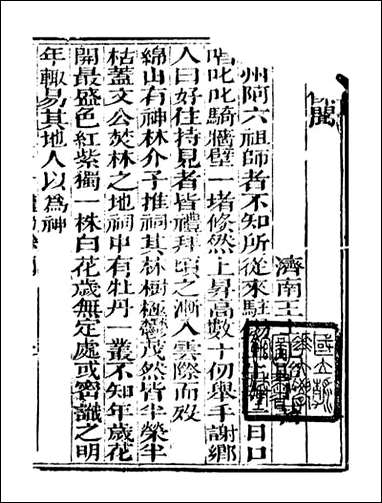 隴
濟南王士
州阿六祖師者不知所從來駐日口
唱叱叱騎牆壁一堵倏然上昇高數十仞舉手謝鄉
人曰好往持見者皆禮拜頃之漸入雲際而歿
綿山有神林介子推祠其林樹極茂然皆半榮半
枯蓋文公焚林之地祠中有牡丹一叢不知年歲花
開最盛色紅紫獨一株白花歲無定處或密識之明
年輒易其地人以為神